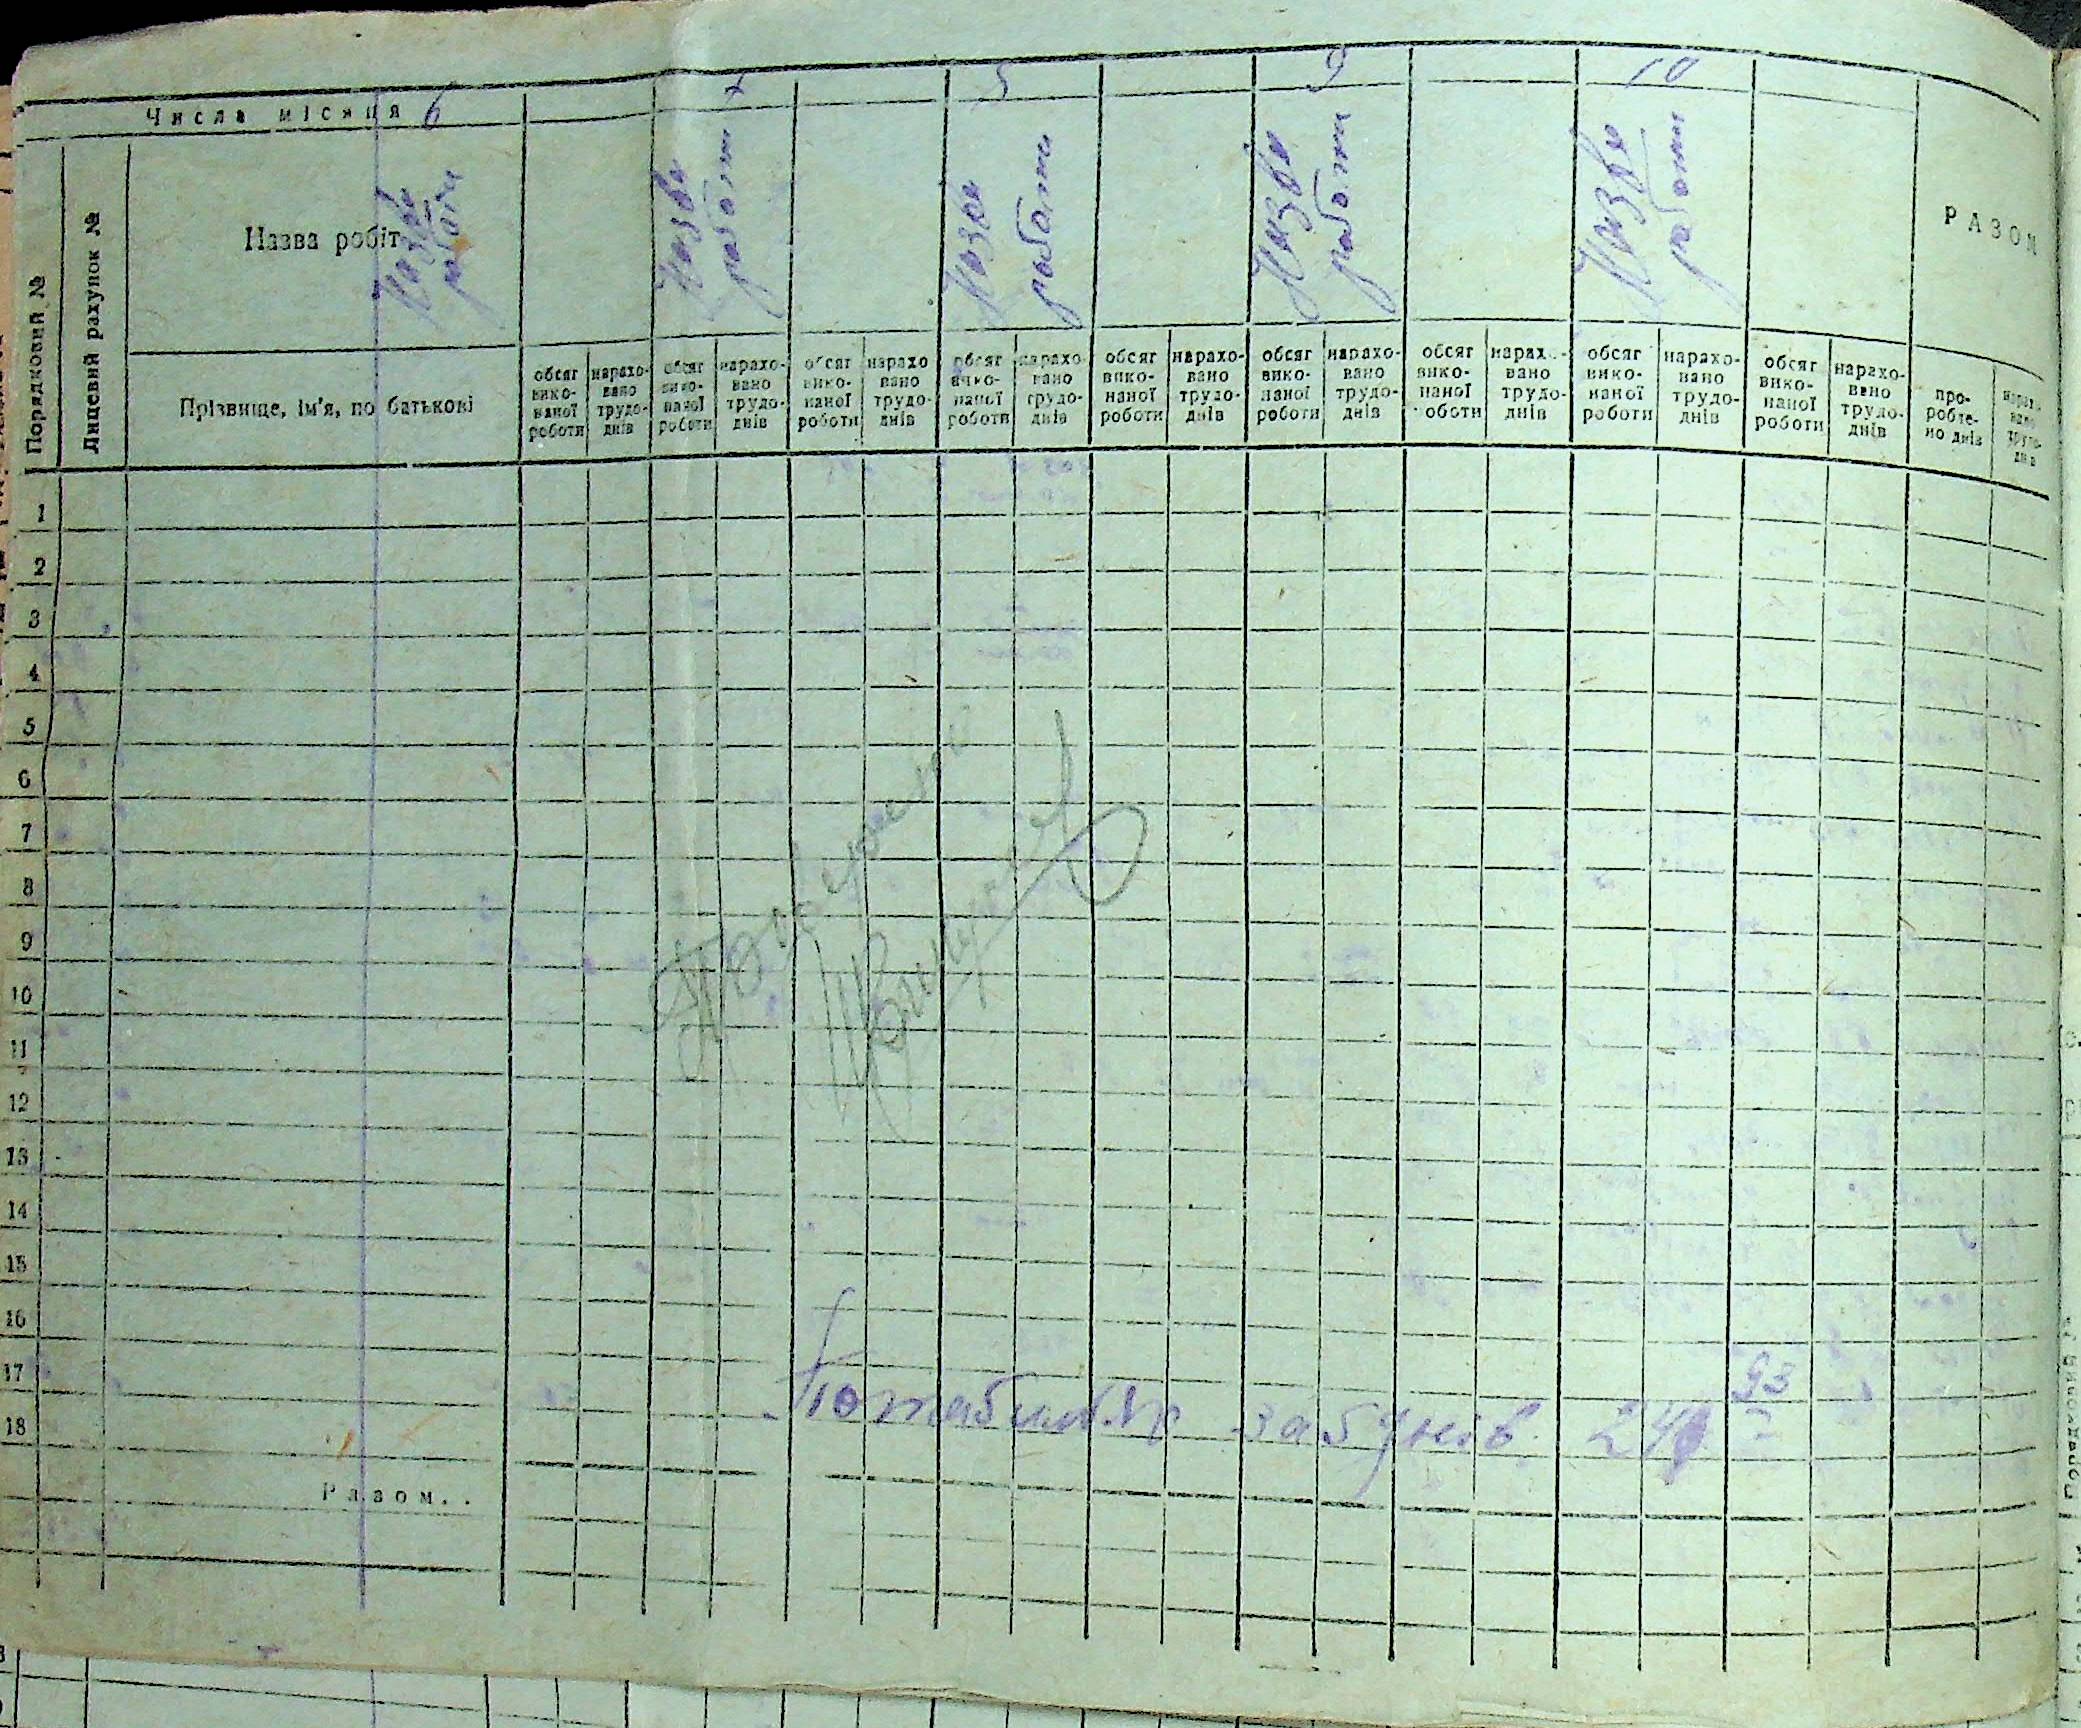 Числа місяця 6 7 5 9 10
Порядковий №
Лицевий рахунок №
Назва робіт
Назва работи
Назва работи
Назва работи
Назва работи
Назва работи
РАЗОМ
Прізвище, ім'я, по батькові
обсяг виконаної роботи
нараховано трудоднів
обсяг виконаної роботи
нараховано трудоднів
обсяг виконаної роботи
нараховано трудоднів
обсяг виконаної роботи
нараховано трудоднів
обсяг виконаної роботи
нараховано трудоднів
обсяг виконаної роботи
нараховано трудоднів
обсяг виконаної роботи
нараховано трудоднів
обсяг виконаної роботи
нараховано трудоднів
обсяг виконаної роботи
нараховано трудоднів
пророблено днів
нараховано трудоднів
1
2
3
4
5
6
7
8
9
10
11
12
13
14
15
16
17
18
93
за 5 днів 24
Разом..